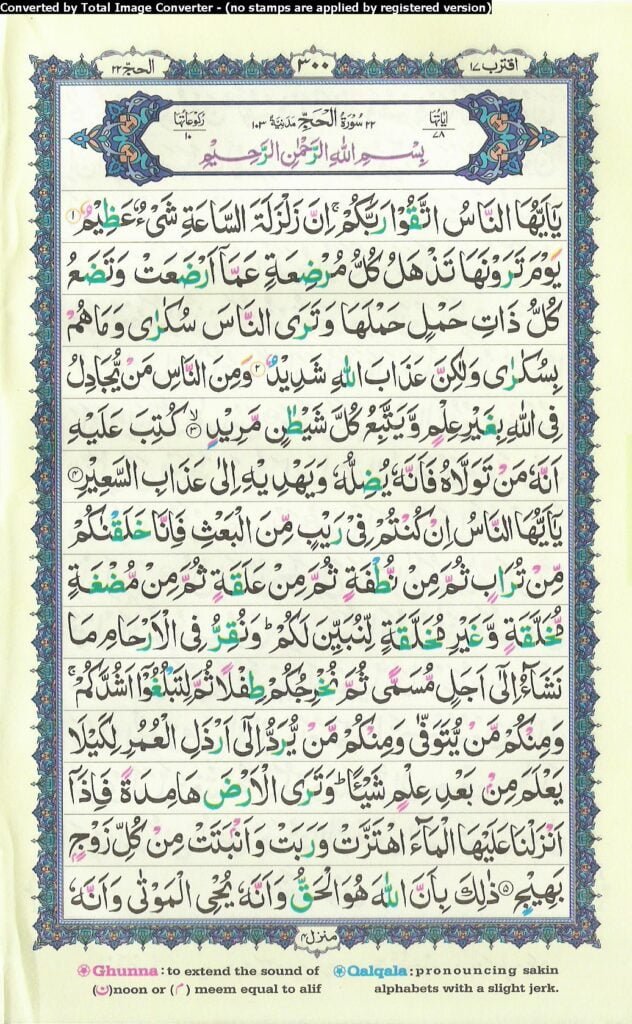 Converted by Total Image Converter - (no stamps are applied by registered version)
اقترب ١٧
٣٠٠
الحج ٢٢
اٰیاتها ٧٨
٢٢ سُوْرَةُ الْحَجِّ مَدَنِيَّةٌ ١٠٣
رکوعاتها ١٠
بِسْمِ اللهِ الرَّحْمٰنِ الرَّحِيْمِ
يٰۤاَيُّهَا النَّاسُ اتَّقُوْا رَبَّكُمْ ۚ اِنَّ زَلْزَلَةَ السَّاعَةِ شَيْءٌ عَظِيْمٌ ١
يَوْمَ تَرَوْنَهَا تَذْهَلُ كُلُّ مُرْضِعَةٍ عَمَّاۤ اَرْضَعَتْ وَتَضَعُ
كُلُّ ذَاتِ حَمْلٍ حَمْلَهَا وَتَرَى النَّاسَ سُكٰرٰى وَمَا هُمْ
بِسُكٰرٰى وَلٰكِنَّ عَذَابَ اللهِ شَدِيْدٌ ٢ وَمِنَ النَّاسِ مَنْ يُّجَادِلُ
فِى اللهِ بِغَيْرِ عِلْمٍ وَّيَتَّبِعُ كُلَّ شَيْطٰنٍ مَّرِيْدٍ ۙ ٣ كُتِبَ عَلَيْهِ
اَنَّهٗ مَنْ تَوَلَّاهُ فَاَنَّهٗ يُضِلُّهٗ وَيَهْدِيْهِ اِلٰى عَذَابِ السَّعِيْرِ ٤
يٰۤاَيُّهَا النَّاسُ اِنْ كُنْتُمْ فِيْ رَيْبٍ مِّنَ الْبَعْثِ فَاِنَّا خَلَقْنٰكُمْ
مِّنْ تُرَابٍ ثُمَّ مِنْ نُّطْفَةٍ ثُمَّ مِنْ عَلَقَةٍ ثُمَّ مِنْ مُّضْغَةٍ
مُّخَلَّقَةٍ وَّغَيْرِ مُخَلَّقَةٍ لِّنُبَيِّنَ لَكُمْ ؕ وَنُقِرُّ فِى الْاَرْحَامِ مَا
نَشَآءُ اِلٰۤى اَجَلٍ مُّسَمًّى ثُمَّ نُخْرِجُكُمْ طِفْلًا ثُمَّ لِتَبْلُغُوْۤا اَشُدَّكُمْ ۚ
وَمِنْكُمْ مَّنْ يُّتَوَفّٰى وَمِنْكُمْ مَّنْ يُّرَدُّ اِلٰۤى اَرْذَلِ الْعُمُرِ لِكَيْلَا
يَعْلَمَ مِنْۢ بَعْدِ عِلْمٍ شَيْـًٔا ؕ وَتَرَى الْاَرْضَ هَامِدَةً فَاِذَاۤ
اَنْزَلْنَا عَلَيْهَا الْمَآءَ اهْتَزَّتْ وَرَبَتْ وَاَنْۢبَتَتْ مِنْ كُلِّ زَوْجٍۭ
بَهِيْجٍ ٥ ذٰلِكَ بِاَنَّ اللهَ هُوَ الْحَقُّ وَاَنَّهٗ يُحْيِ الْمَوْتٰى وَاَنَّهٗ
منزل ٤
Ghunna : to extend the sound of
(ن) noon or (م) meem equal to alif
Qalqala : pronouncing sakin
alphabets with a slight jerk.